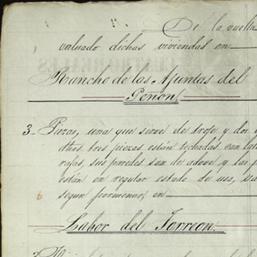 De la vuelta
valuado dichas viviendas en
Rancho de las Juntas del
Peñon
3. Piezas, una que sirve de troje y dos
otras tres piezas están techadas
rajas, sus paredes son de adove y las
están en regular estado de uso,
segun pormenor, en
Labor del Torreon.